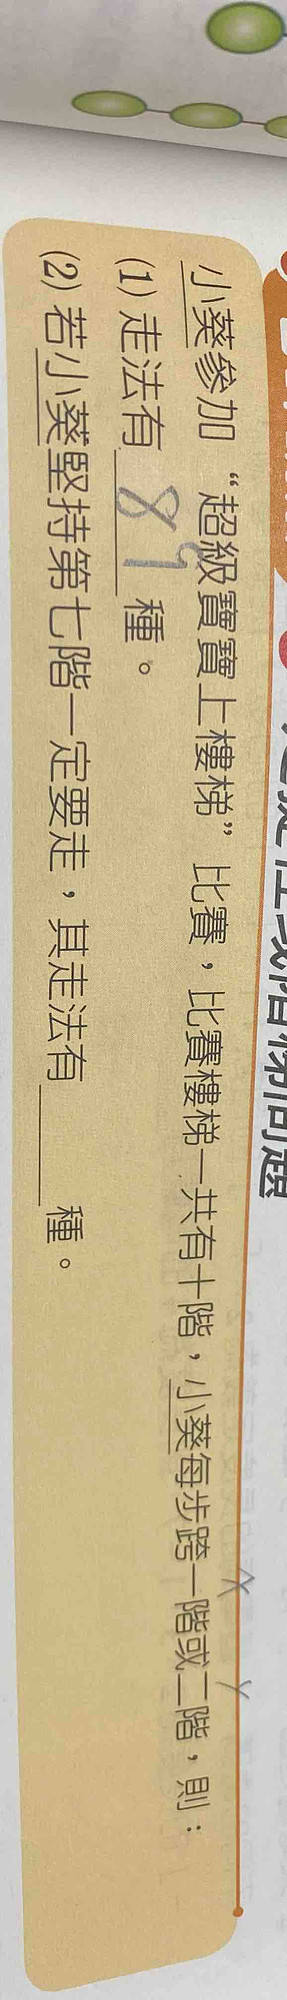 小葵參加“超級寶寶上樓梯”比賽，比賽樓梯一共有十階，小葵每步跨一階或二階，則：
x y
(1) 走法有 89 種。
(2) 若小葵堅持第七階一定要走，其走法有＿＿＿種。